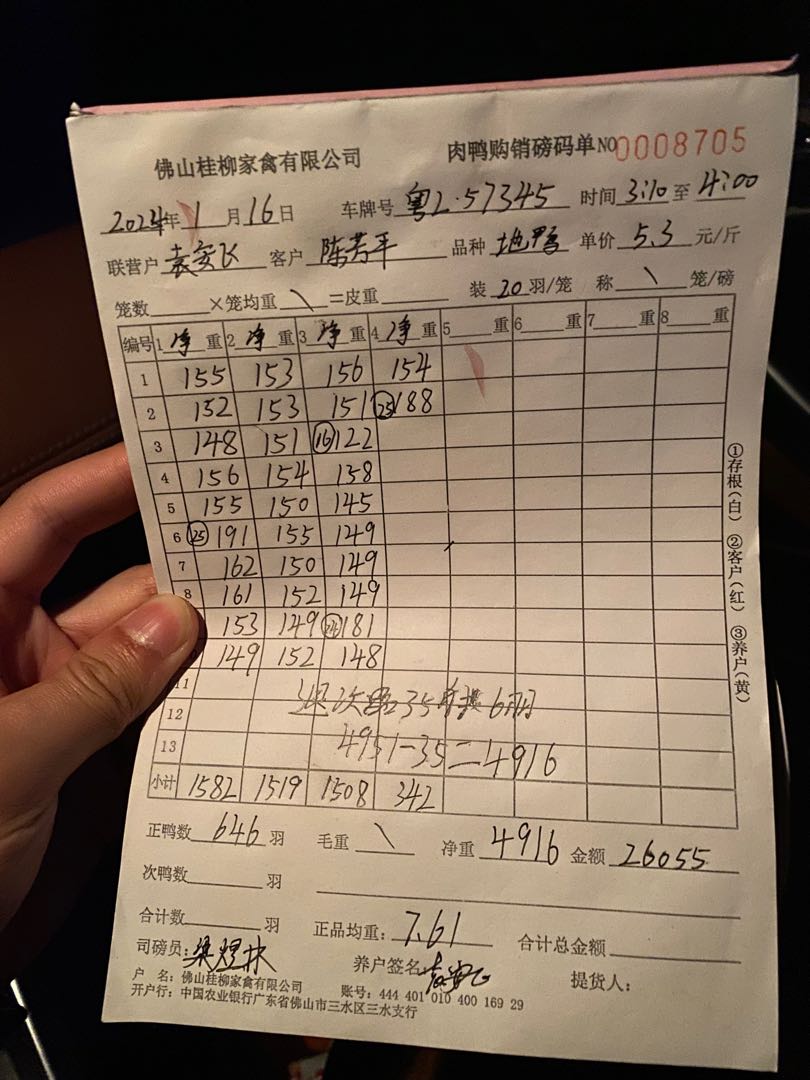 佛山桂柳家禽有限公司 肉鸭购销磅码单 NO 0008705
2024年 1 月 16 日 车牌号 粤L·57345 时间 3:10 至 4:00
联营户 袁安飞 客户 陈芳平 品种 地鸭 单价 5.3 元/斤
笼数 ×笼均重 \ =皮重 装 20 羽/笼 称 \ 笼/磅
编号 1 净 重 2 净 重 3 净 重 4 净 重 5 重 6 重 7 重 8 重
1 155 153 156 154
2 152 153 151 25 188
3 148 151 16 122
4 156 154 158
5 155 150 145
6 25 191 155 149
7 162 150 149
8 161 152 149
153 149 24 181
149 152 148
11 35 6
12
4951-35=4916
13
小计 1582 1519 1508 342
正鸭数 646 羽 毛重 \ 净重 4916 金额 26055
次鸭数 羽
合计数 羽 正品均重: 7.61 合计总金额
司磅员: 梁煜林 养户签名 提货人:
户 名: 佛山桂柳家禽有限公司 账号: 444 401 010 400 169 29
开户行: 中国农业银行广东省佛山市三水区三水支行
①存根(白) ②客户(红) ③养户(黄)